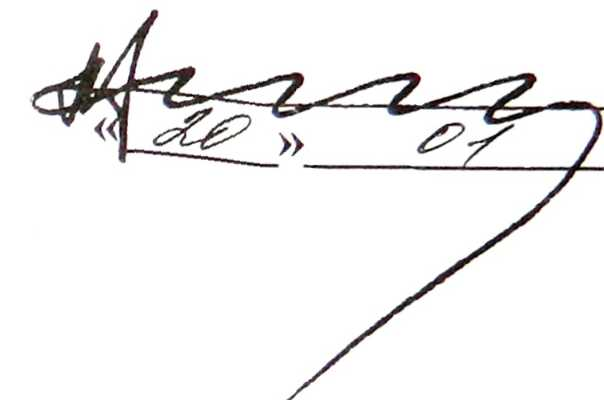 « 20 » 01